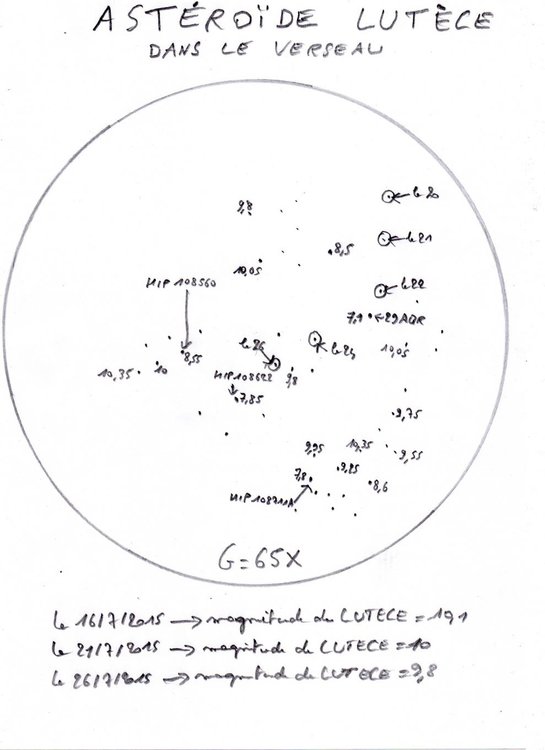 ASTÉROÏDE LUTÈCE
DANS LE VERSEAU
le 20
9,8
le 21
8,5
10,05
HIP 108560
le 22
7,1 ← 29 AQR
le 26
le 24
10,05
8,55
10,35
10
HIP 108622
9,8
7,85
9,75
9,95
10,35
9,55
9,85
7,8
8,6
G=65X
le 16/7/2015 → magnitude de LUTECE = 10,1
le 21/7/2015 → magnitude de LUTECE = 10
le 26/7/2015 → magnitude de LUTECE = 9,8